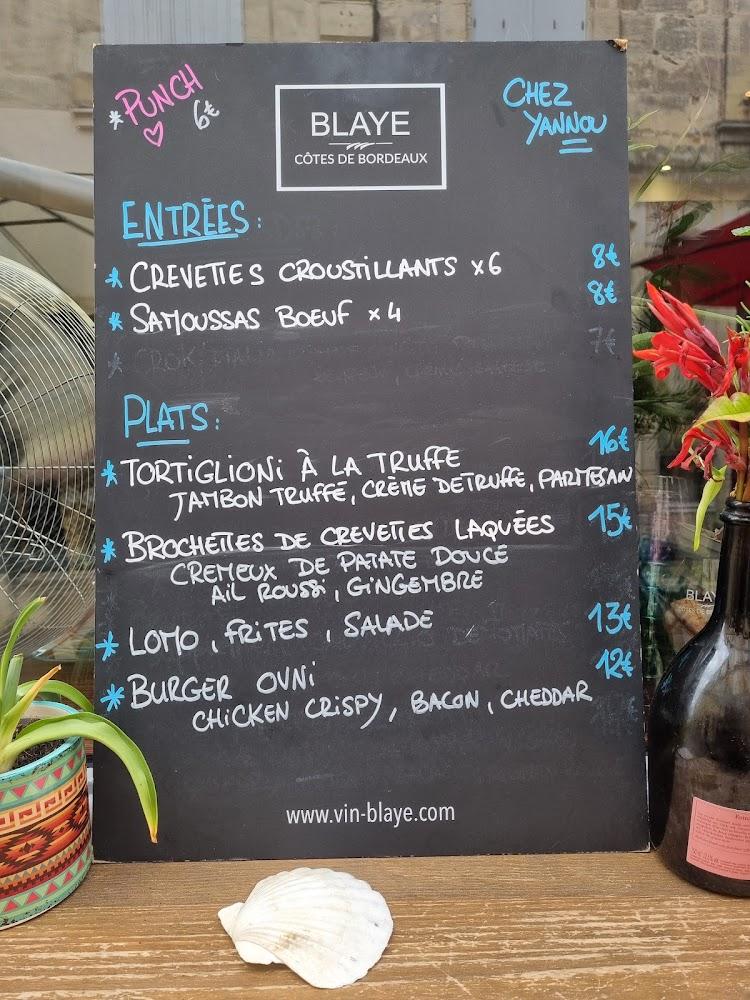 * PUNCH 6€
BLAYE
CÔTES DE BORDEAUX
CHEZ
YANNOU
ENTRÉES :
* CREVETTES CROUSTILLANTS x6 8€
* SAMOUSSAS BOEUF x4 8€
7€
PLATS :
* TORTIGLIONI À LA TRUFFE 16€
JAMBON TRUFFE, CRÈME DE TRUFFE, PARMESAN
* BROCHETTES DE CREVETTES LAQUÉES 15€
CREMEUX DE PATATE DOUCE
AIL ROUSSI, GINGEMBRE
* LOMO, FRITES, SALADE 13€
* BURGER OVNI 12€
CHICKEN CRISPY, BACON, CHEDDAR
www.vin-blaye.com